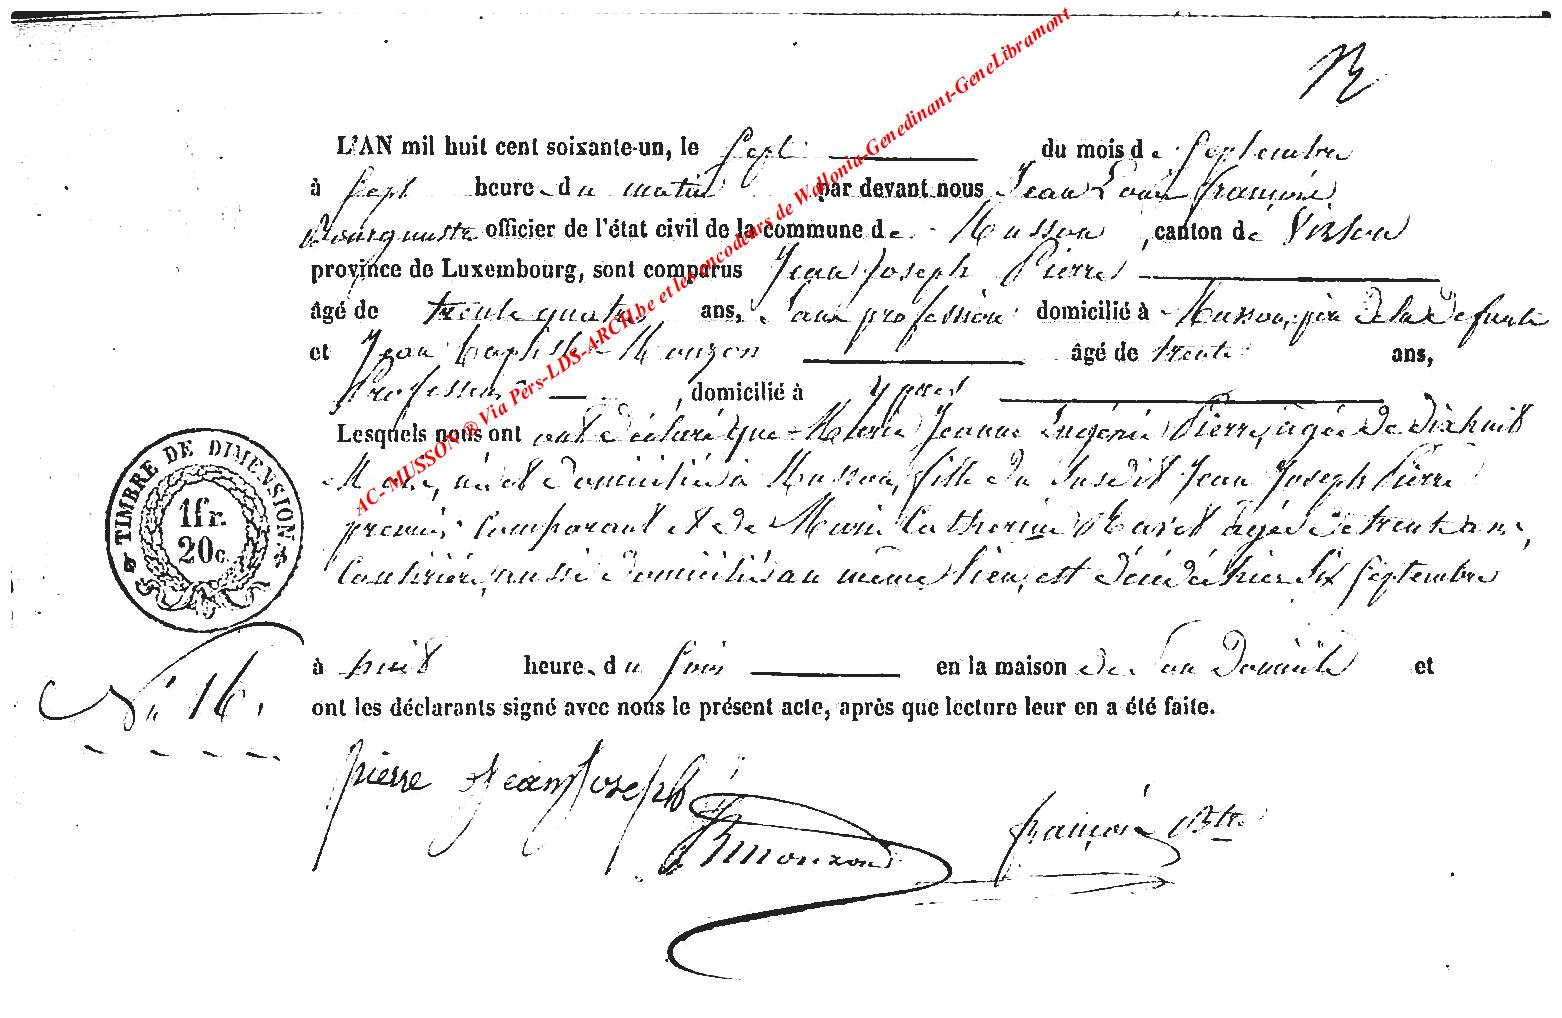 L'AN mil huit cent soixante-un, le sept du mois de Septembre
à sept heure du matin par devant nous Jean Louis françois
officier de l'état civil de la commune de Musson, canton de Virton
province de Luxembourg, sont comparus Jean Joseph Pierre
âgé de trente quatre ans, Sans profession domicilié à Musson, père de la défunte
et Jean Baptiste Mouzon âgé de trente ans,
Professeur, domicilié à Ypres
Lesquels nous ont ont déclaré que Marie Jeanne Eugénie Pierre, agée de dixhuit
Mois, née et domiciliée à Musson, fille du Susdit Jean Joseph Pierre
premier Comparant et de Marie Catherine agée de trente ans,
Couturière, aussi domiciliés au même lieu, est décédé hier Six Septembre
à huit heure du soir en la maison de Son Domicile et
ont les déclarants signé avec nous le présent acte, après que lecture leur en a été faite.
TIMBRE DE DIMENSION
1fr.
20c.
N° 16.
pierre jean joseph
JBMouzon
françois Btre
AC- MUSSON ® Via Pers-LDS-ARCH.be et les encodeurs de Wallonia-Genedinant-GeneLibramont